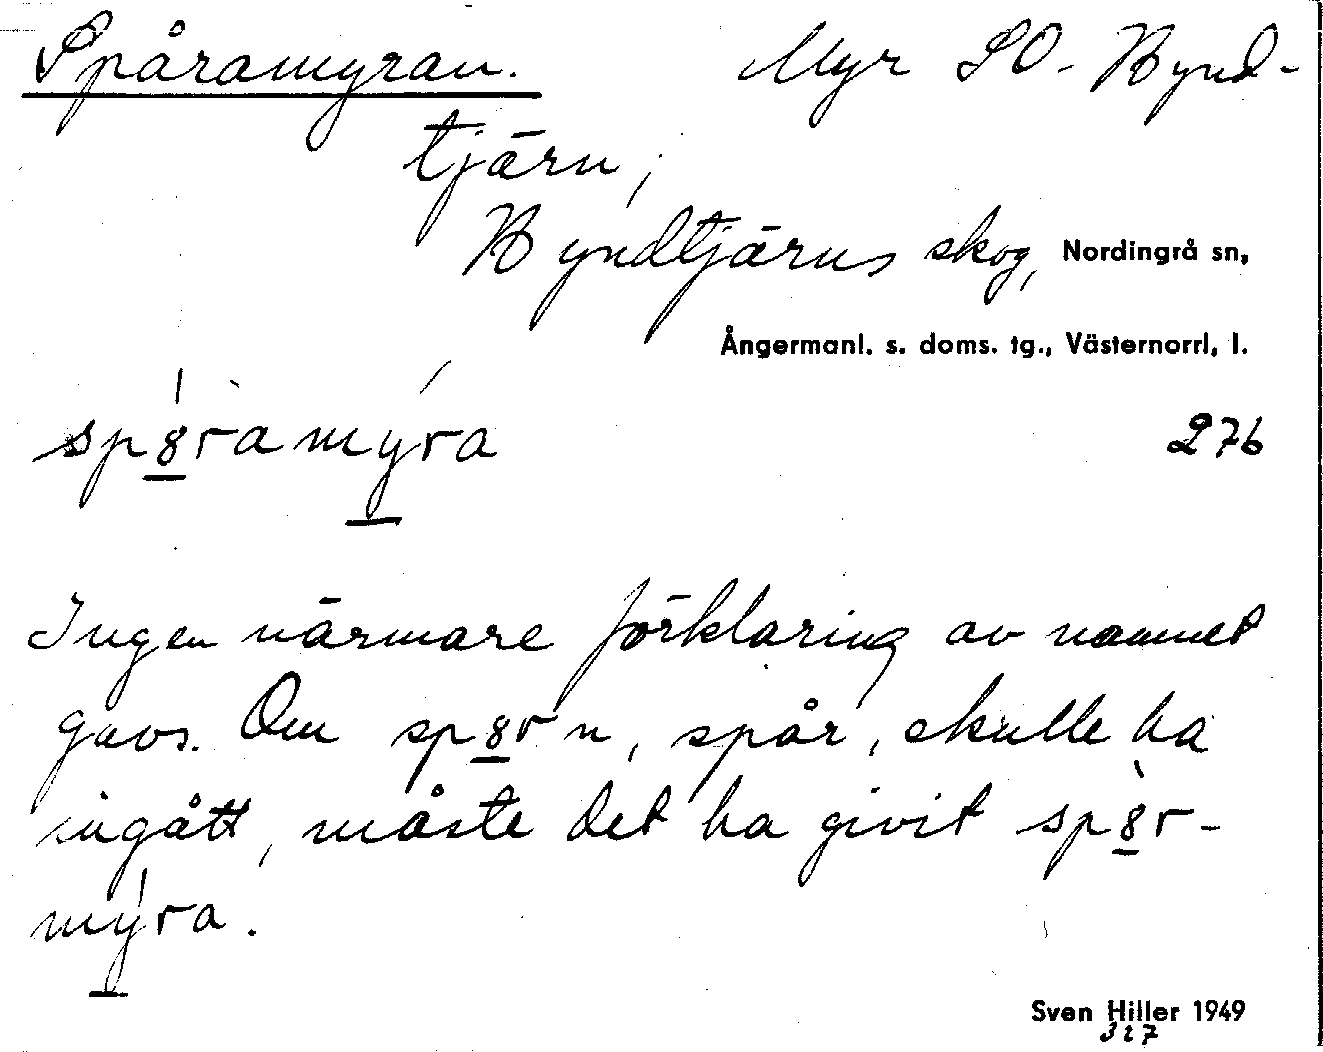 Spåramyran. Myr SO. Bynd-
tjärn,
Byndtjärns skog, Nordingrå sn,
Ångermanl. s. doms. tg., Västernorrl, l.
sp8ramyra 276
Ingen närmare förklaring av namnet
gavs. Om sp8r n, spår, skulle ha
ingått, måste det ha givit sp8r-
myra.
Sven Hiller 1949
327